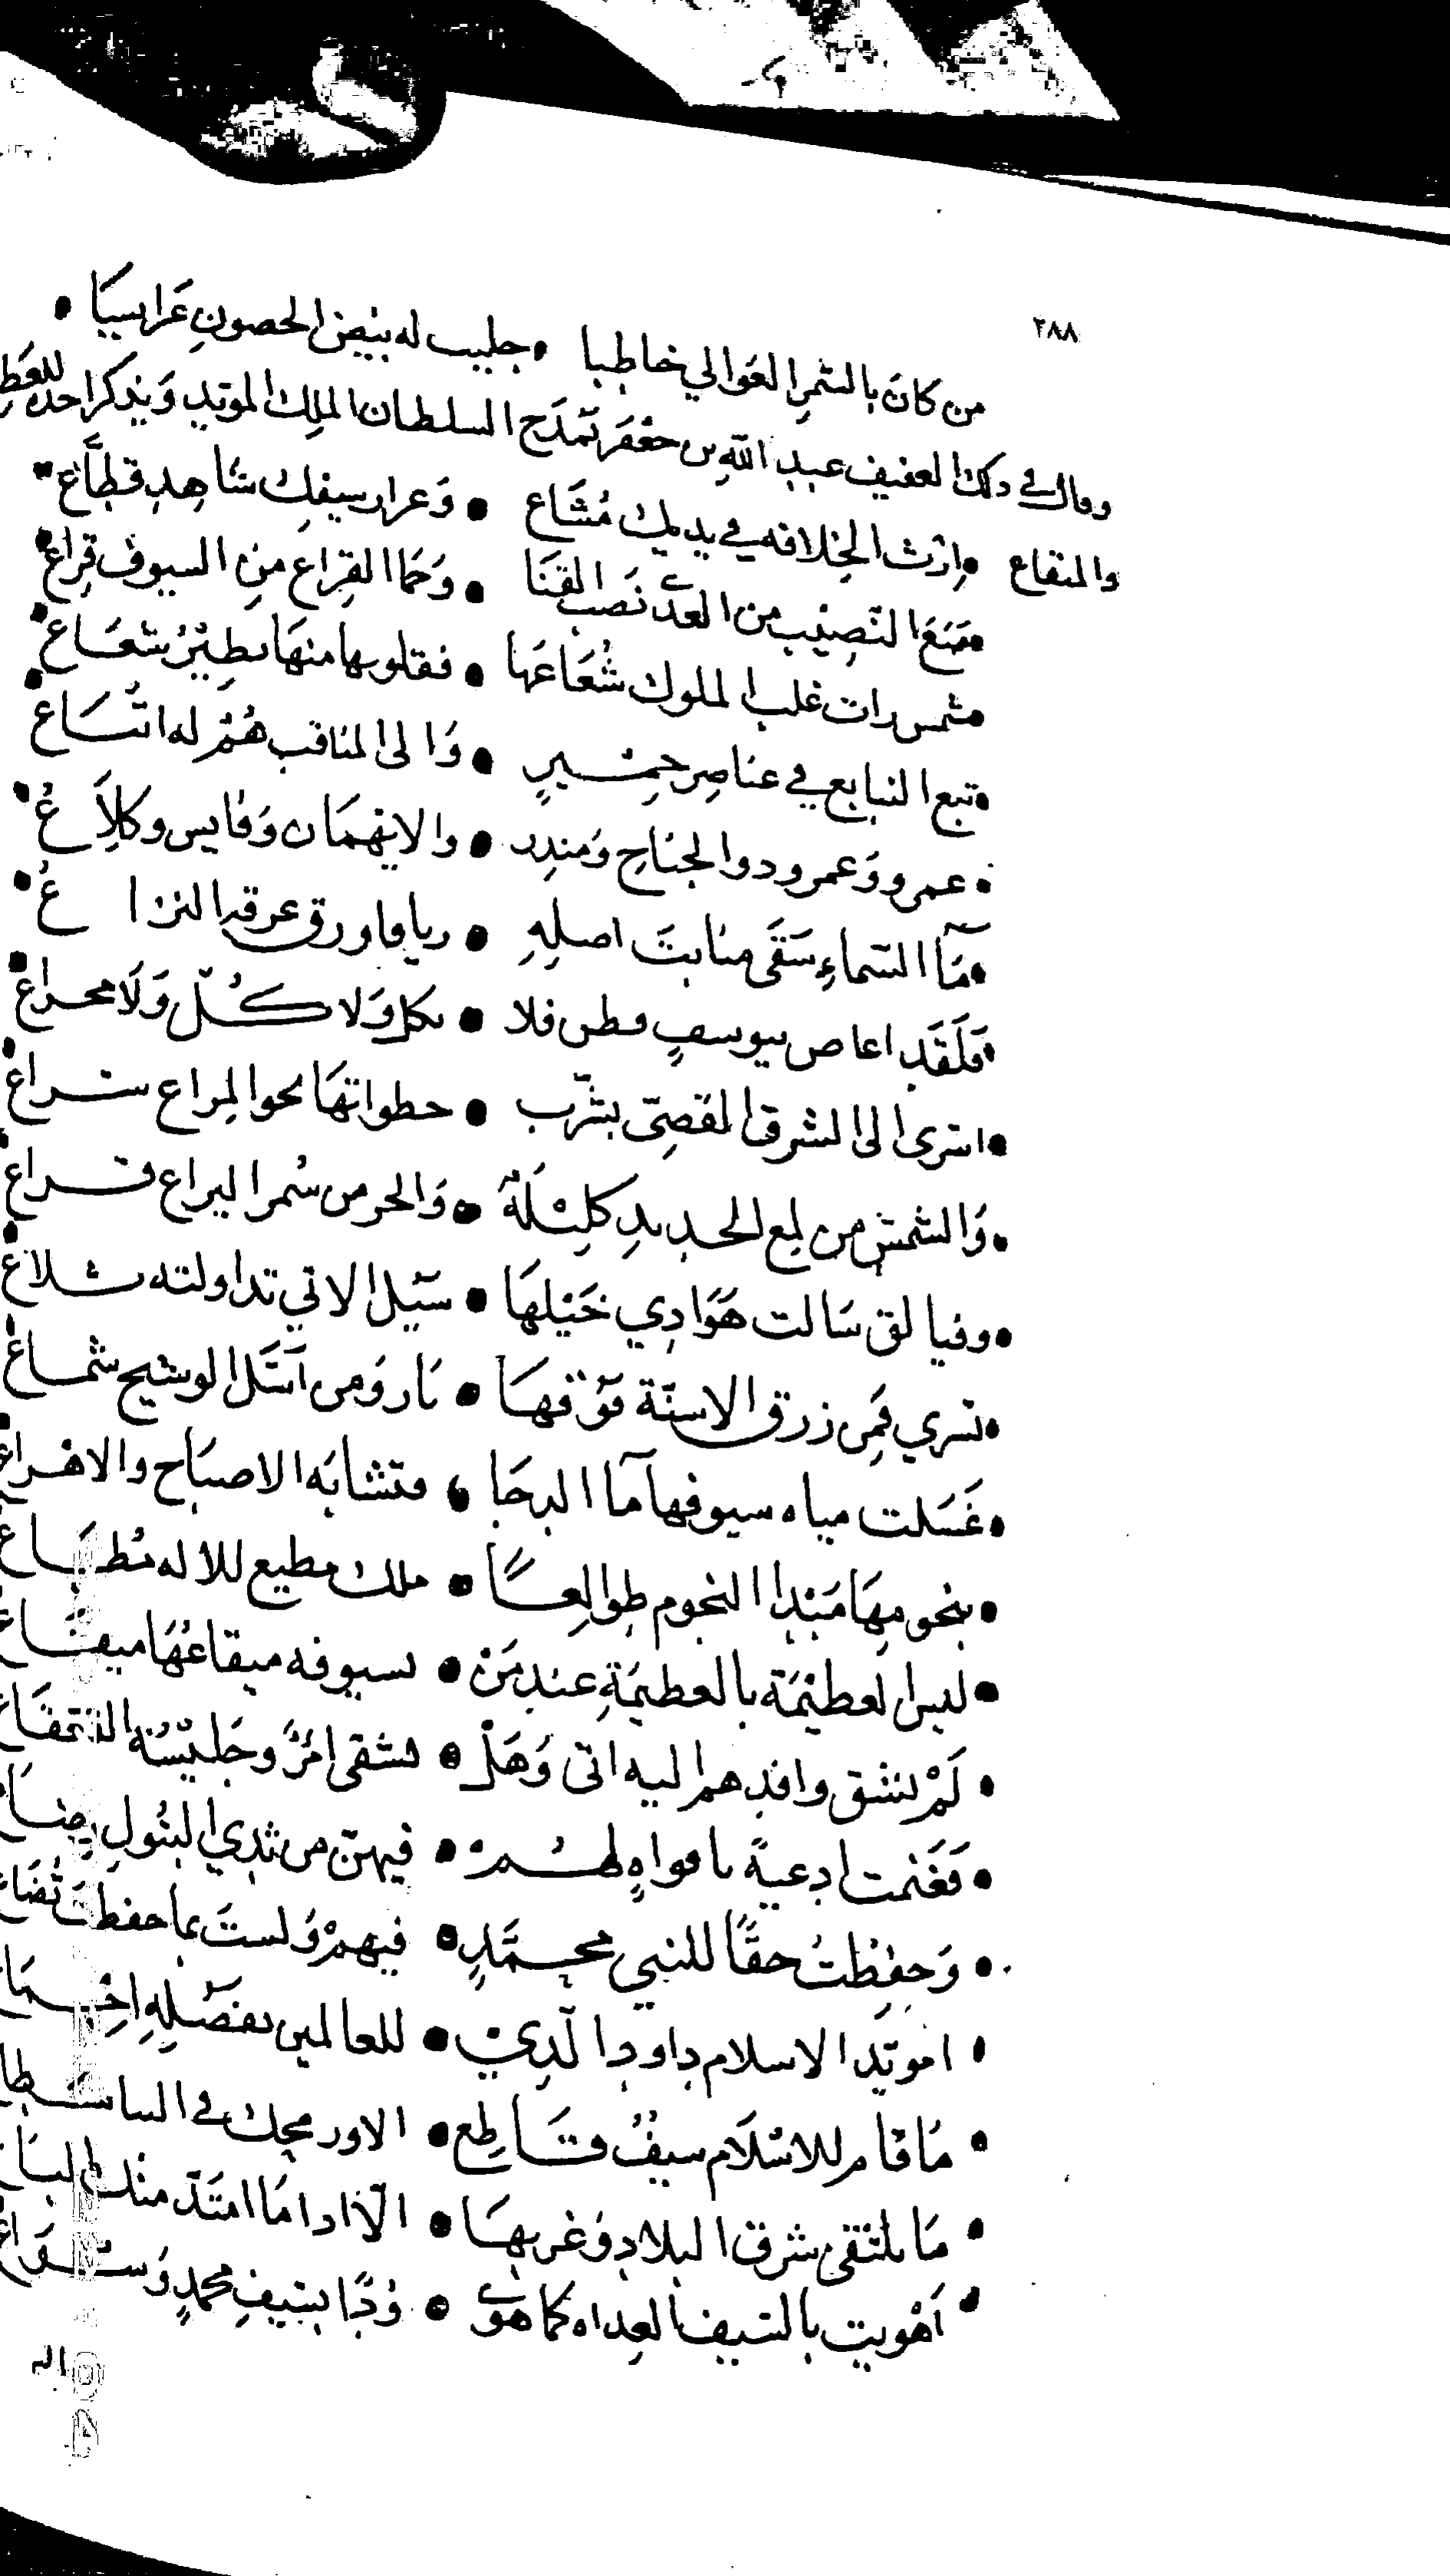 ٢٨٨
من كانَ بالسُّمرِ العَوالي خاطِبا • جلبت له بيْضُ الحصونِ عَرايسَا •
وقال في ذلك العفيف عبد الله بن جعفر يَمْدَح السلطان الملك المويد وَيذكر اخذه للعَظِ
والمنقاع • اِرْث الخِلافه في يديك مُشَاع • وَعرار سيفك شَاهِد قطّاع •
• مَنَعَ النّصِيْب من العدى نَصب القَنَا • وَحمَا القِراع من السيوف قِراع •
• شمس رات غلب الملوك شُعَاعَها • فقلوبها منهَا تطِيْرُ شعَاع •
• تبع التبابع في عناصر حِمْيرٍ • وَالى المناقب هُمْ له اتْبَاع •
• عمرو وَعمرو ذوا الجناحِ وَمنذر • والايهمَان وَقابس وكلاَعُ •
• مَآا السّماءِ سَقَى منابتَ اصلِهِ • ريا فاورق عرقه النزاعُ •
• فلَقَد اعاص بيوسفٍ فطن فلا • نكل وَلا كُلّ وَلا مجزاع •
• اسرى الى الشرق القصِيّ بشُزّب • خطواتهَا نحوا لمراع سراع •
• وَالشمسُ من لمع الحديدِ كلِيْلَةٌ • وَالجو من سُمر اليراع قراع •
• وفيالق سَالت هَوَادِي خَيْلهَا • سَيْل الاتي تداولته تلاع •
• تسري فَمِن زرق الاسنّة فوْقهَا • نار وَمن اَسَل الوشيج شماع •
• غَسَلت مياه سيوفها مآا الدجَا • فتشابَه الاصبَاح والاهزاع
• بنجومهَا مَبْدا النجوم طوالِعًا • ملك مطيع للاله مُطَاع
• ليس العظيْمَة بالعظيمَةِ عند مَنْ • لسيوفه ميقاعُهَا ميقاع
• لَمْ يشق وافدهم اليه اتى وَهَلْ • يشقى امْرؤٌ وجَليْسُه القعقَاع
• فَغَنمت ادعيةً بافواهٍ لهُمْ • فيهنّ من ثدي البتُولِ رضَاع
• وَحفِظْتُ حقًّا للنبي محمَّدٍ • فيهمْ وَلستَ بما حفظتَ تُضَاع
• امويّد الاسلام داود الّذِي • للعالمين بفضْلِهِ اجْمَاع
• مَا قام للاسْلَام سيفٌ قَاطِع • الا ورمحك في الساسـطا
• مَا يلتقي شرق البلاد وَغربهَا • الّا اذا مَا امتَدّ منك البَاع
• اَهْويت بالسيف العِداه كما هَوى • وُدًّا بسَيفِ محمدٍ وَسُوَاع
اله